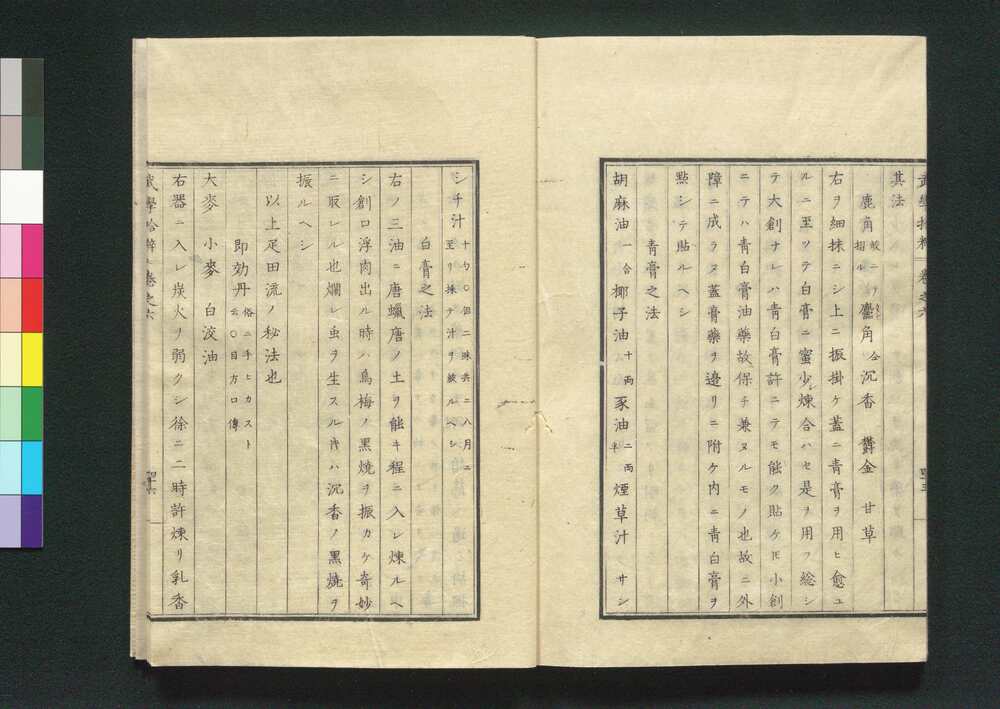 其法
鹿角 鮫ニヲ招ル 麞角 合 沉香 欝金 甘草
右ヲ細抹ニシ上ニ振掛ケ蓋ニ青膏ヲ用ヒ愈ユ
ルニ至ツテ白膏ニ蜜少シ煉合ハセ是ヲ用フ総シ
テ大創ナレハ青白膏許ニテモ能ク貼ケ𪜈小創
ニテハ青白膏油藥故保チ兼ヌルモノ也故ニ外
障ニ成ラヌ蓋膏藥ヲ邉リニ附ケ内ニ靑白膏ヲ
點シテ貼ルヘシ
青膏之法
胡麻油 一合 椰子油 十両 豕油 二両半 煙草汁 サシ
シ千汁
白膏之法
右ノ三油ニ唐蠟唐ノ土ヲ能キ程ニ入レ煉ルヘ
シ創口浮肉出ル時ハ烏梅ノ黒焼ヲ振カケ奇妙
ニ取レル也爛レ虫ヲ生スル𪜈ハ沉香ノ黒燒ヲ
振ルヘシ
以上足田流ノ秘法也
即効丹 俗ニ手ヒカスト云〇目方口傳
大麥 小麥 白涭油
右器ニ入レ炭火ヲ弱クシ徐ニ二時許煉リ乳香